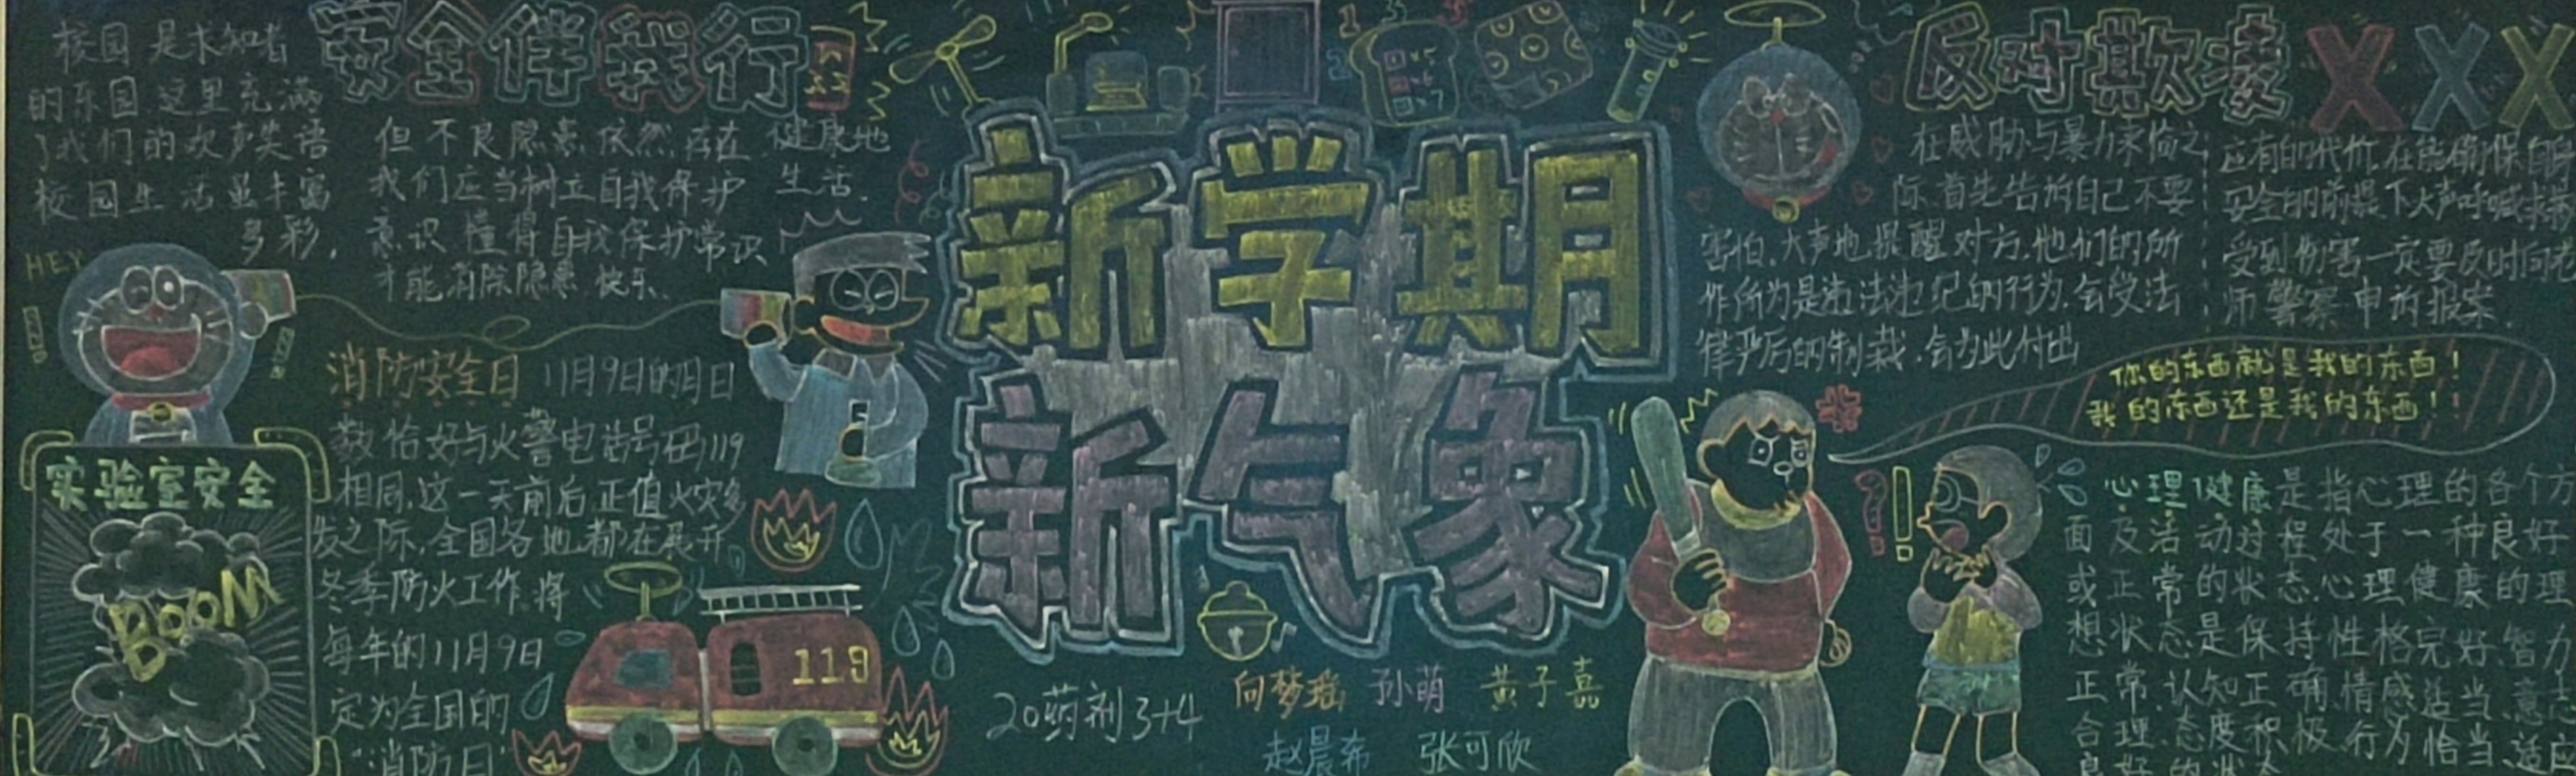 安全伴我行
校园是求知者
的乐园这里充满
了我们的欢声笑语
校园生活虽丰富
多彩,
但不良隐患依然存在
我们应当树立自我保护
意识 懂得自我保护常识
才能消除隐患 快乐、
健康地
生活.
HEY
实验室安全
BOOM
消防安全日 11月9日的月日
数恰好与火警电话号码119
相同,这一天前后,正值火灾多
发之际,全国各地都在展开
冬季防火工作.将
每年的11月9日
定为全国的
“消防日”
119
新学期
新气象
20药剂3+4
向梦瑶 孙萌 黄子嘉
赵晨希 张可欣
反对欺凌 XXX
在威胁与暴力来临之
际.首先告诉自己不要
害怕.大声地提醒对方.他们的所
作所为是违法违纪的行为.会受法
律严厉的制裁.会为此付出
应有的代价.在能确保自身
安全的前提下大声呼喊求救
受到伤害一定要及时向老
师 警察 申诉报案.
你的东西就是我的东西!
我的东西还是我的东西!!
?!
心理健康是指心理的各个方
面及活动过程处于一种良好
或正常的状态.心理健康的理
想状态是保持性格完好.智力
正常.认知正确.情感适当.意志
合理.态度积极.行为恰当.适应
良好的状态